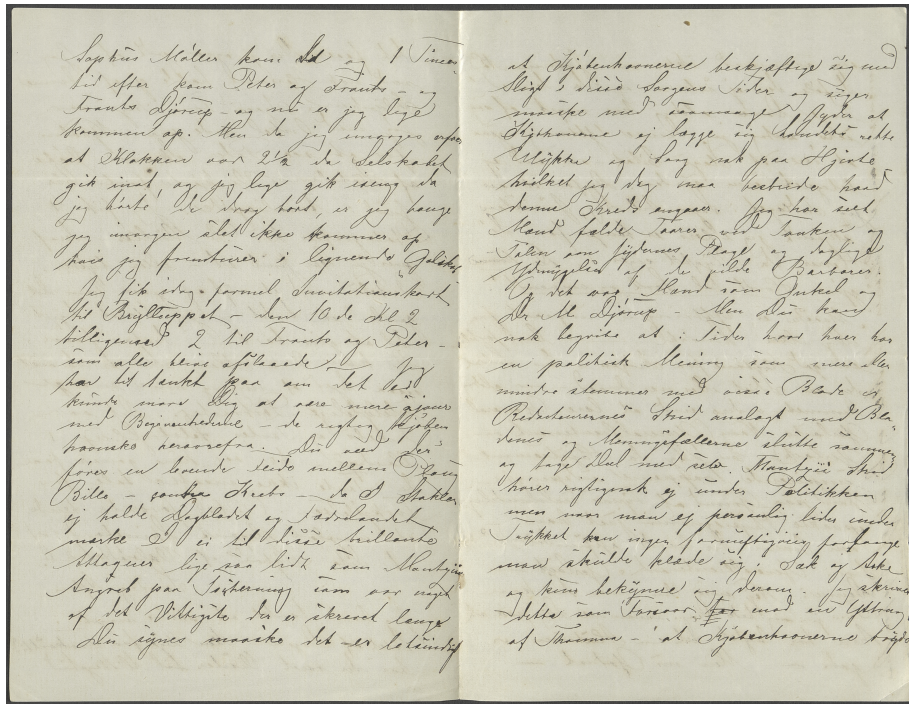 Sophus Møller kom da og 1 Times
tid efter kom Peter og Frants – og
Frants Djørup – og nu er jeg lige
kommen op. Men da jeg imorges erfor
at Klokken var 2½ da Selskabet
gik inat, og jeg lige gik iseng da
jeg hørte de drog bort, er jeg bange
jeg imorgen slet ikke kommer op
hvis jeg fremturer i lignende Galskab
Jeg fik idag formel Invitationskort
til Brylluppet – den 10de Kl 2
2 til Frants og Peter –
som alle bleve afslaaede. Jeg
har til tænkt paa om det ved
kunde more Dig at være mere
med Begivenhederne – de rigtig Kjøben
havnske herovrefra. Du veed der
føres en levende Feide mellem Ploug
Bille – Krebs – da I Stakler
ej holde Dagbladet og Fædrelandet
mærke I ei til disse brillante
Attaquer lige saa lidt som Mantzius
Angreb paa som var noget
af det Vittigste der er skrevet længe
Du synes maaske det er letsindigt
at Kjøbenhavnerne beskjæftige sig med
Sligt i disse Sorgens Tider og siger
maaske med saamange Jyder at
Kjøbhavnerne ej lægge sig Landets
Ulykke og Sorg nok paa Hjerte
hvilket jeg dog maa bestride hvad
denne Kreds angaaer. Jeg har seet
Mænd fælde Taarer ved Tanken og
Talen om Jydernes Plage og daglige
Ydmygelser af de vilde Barbarer.
Og det var Mænd som Onkel og
Dr M. Djørup – Men Du kand
nok begribe at i Tider hvor hver har
en politisk Mening som mere eller
mindre stemmer med visse Blade er
Redacteurernes Strid analogt med Bla
denes og Meningsfællerne slutte sammen
og tage Deel med selv. Mantzius Strid
hører rigtignok ej under Politikken
men naar man ej personlig lider under
Trykket kan ingen fornuftigviis forlange
man skulde klæde sig i Sæk og Aske
og kun bekymre sig derom. Jeg skriver
dette som Forsvar mod en Yttring
af Thomma – at Kjøbenhavnerne